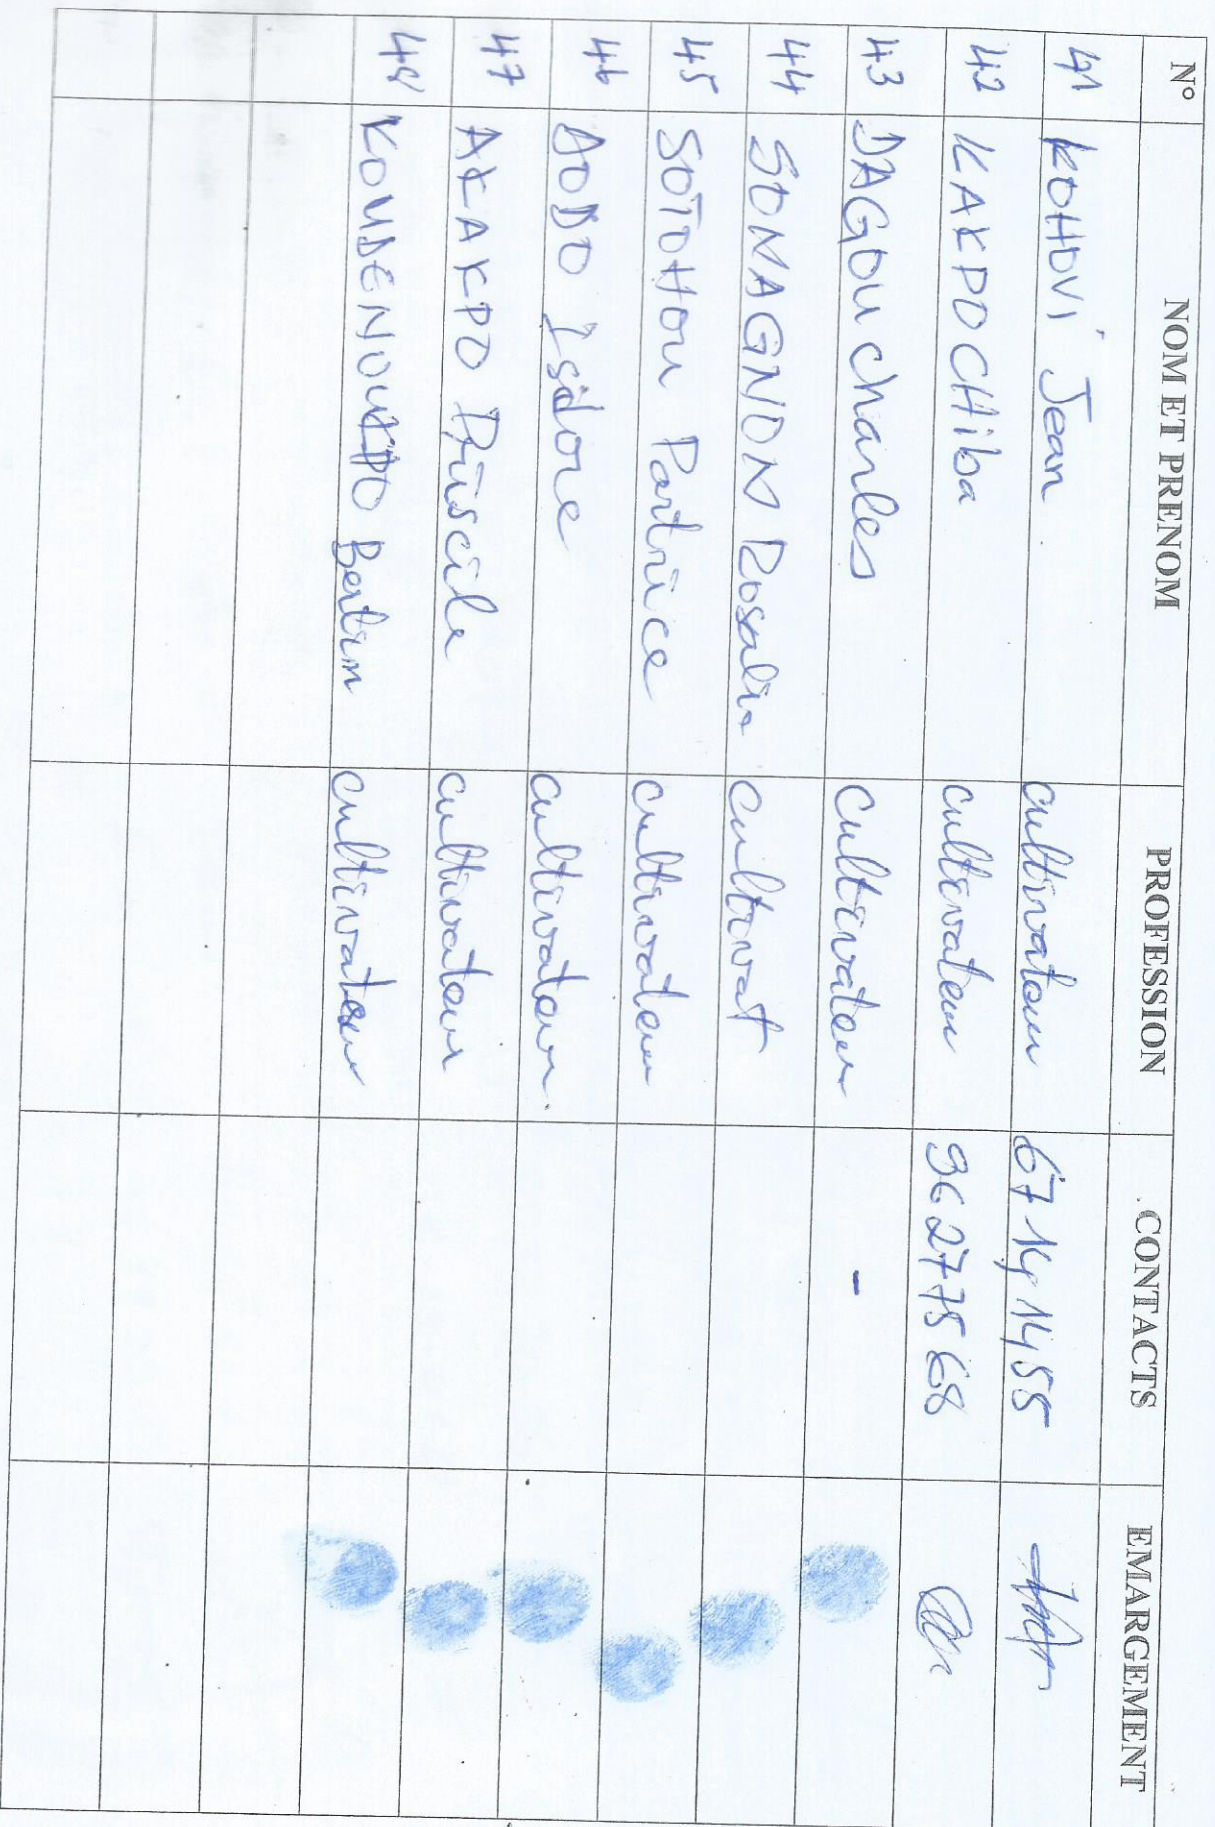 N° NOM ET PRENOM PROFESSION CONTACTS EMARGEMENT
41 KOHOVI Jean cultivateur 67 14 14 55
42 KAKPO CHiba cultivateur 96 27 75 68
43 DAGOU Charles cultivateur -
44 SOMAGNON Rosalie cultivat
45 SOTOHOU Patrice cultivateur
46 DODO Isidore cultivateur
47 AKAKPO Priscile cultivateur
48 KOUDENOUKPO Bertin cultivateur